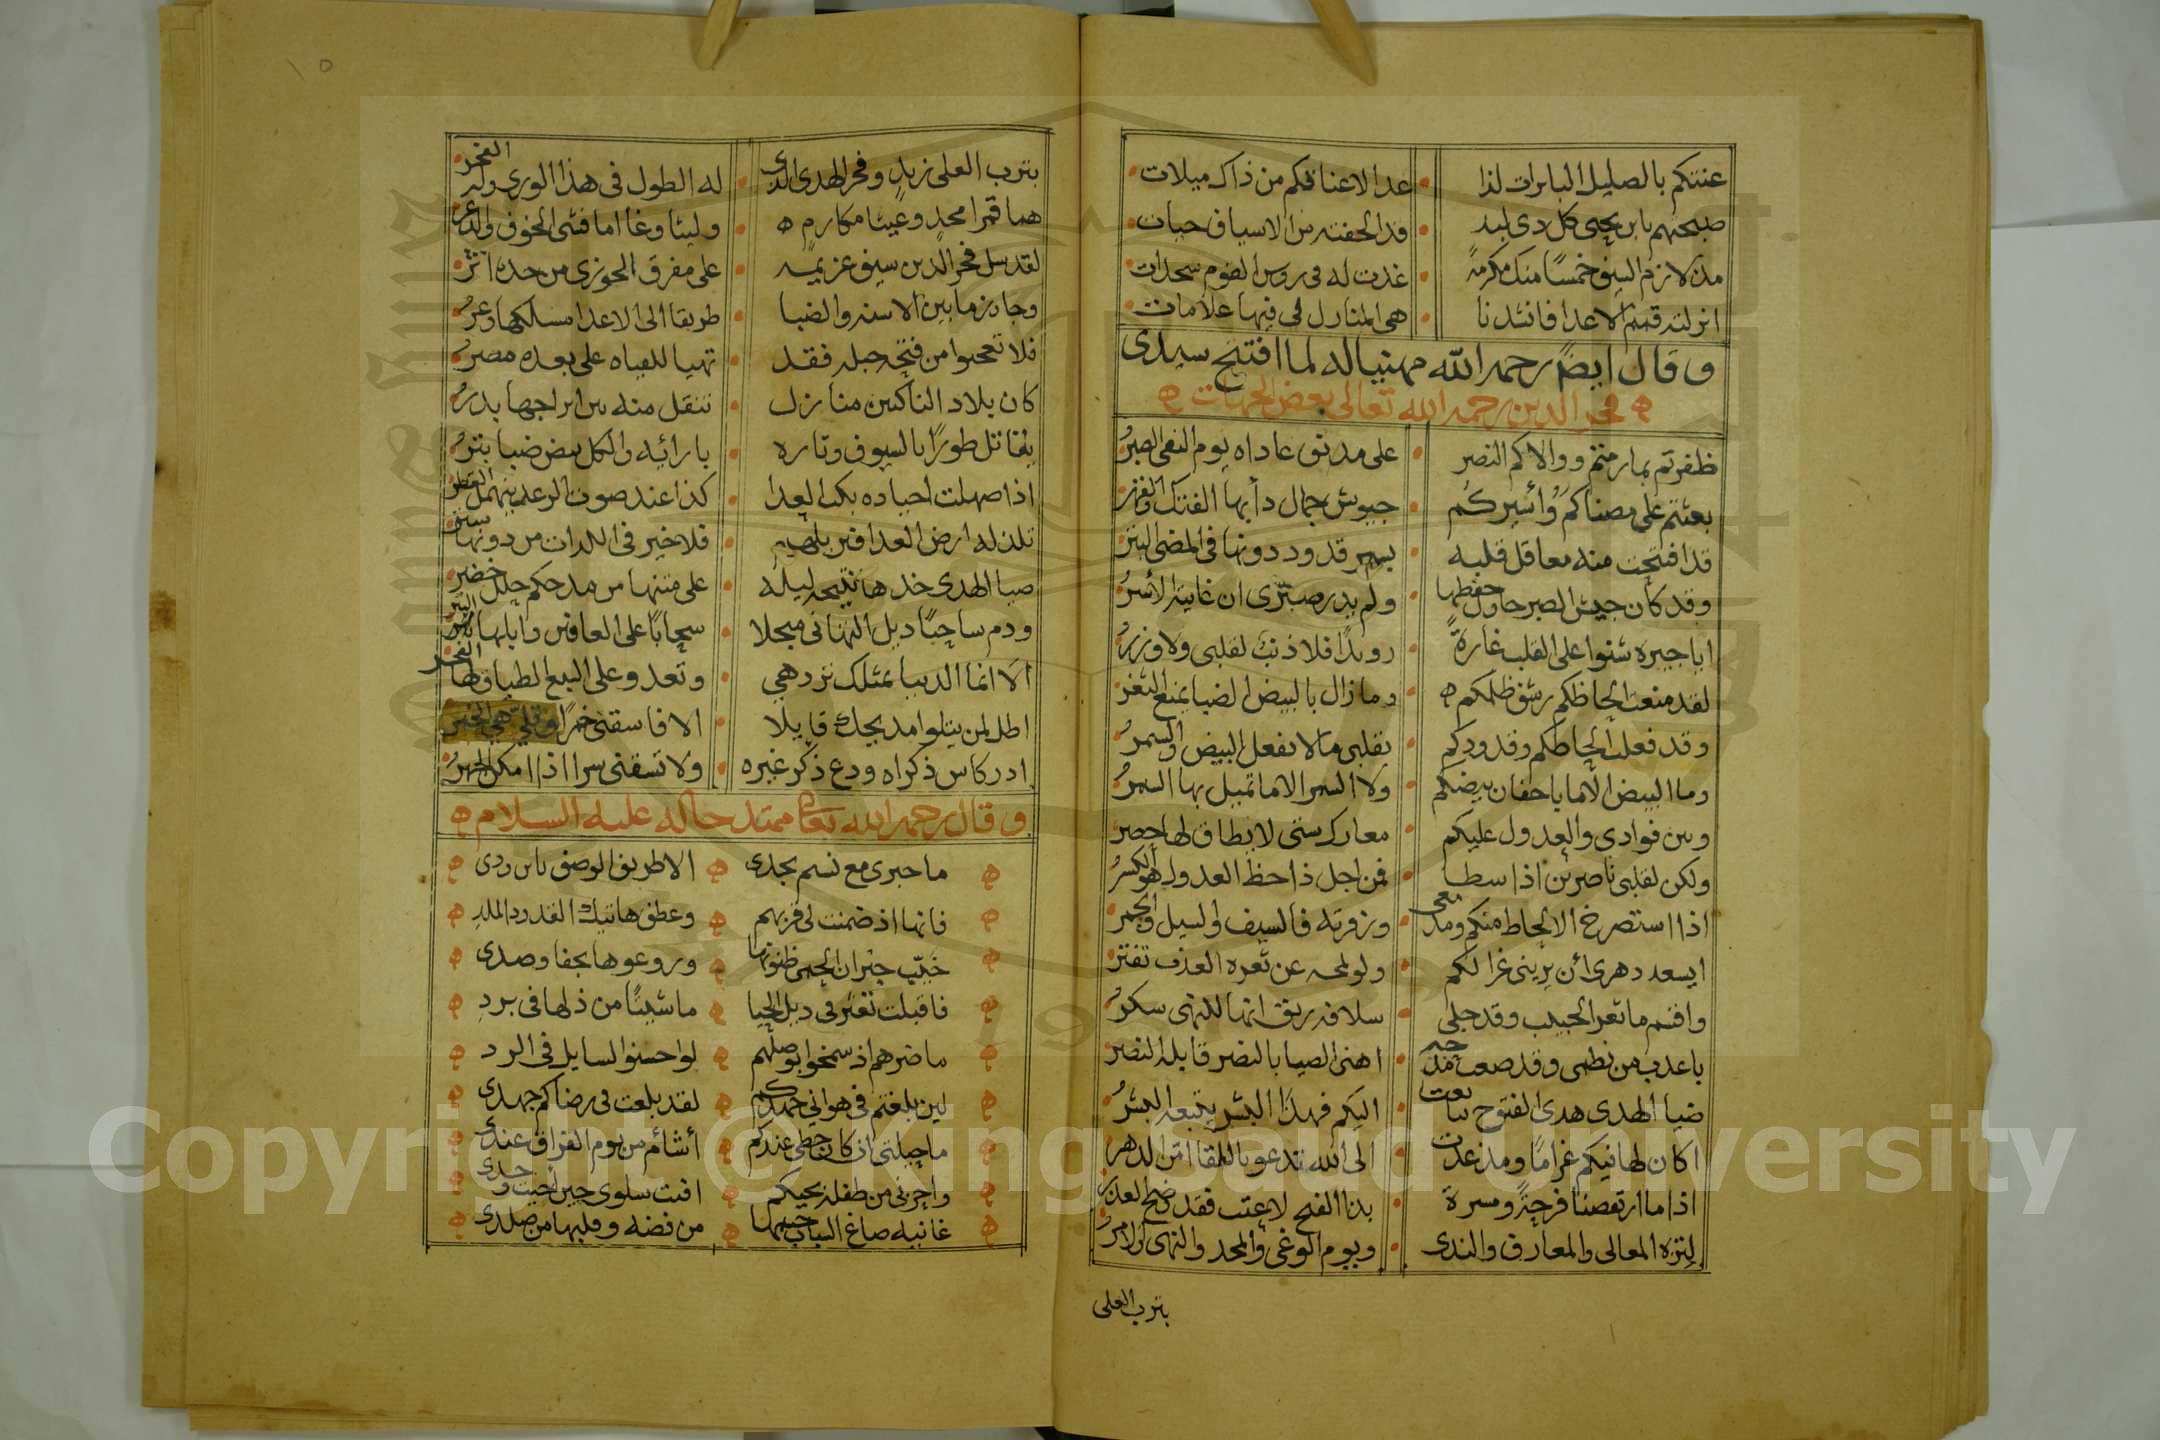 عنتكم بالصليل الباترات لذا عدا الاعناقكم من ذاك ميلات
صبحتهم بابن يحيى كل ذى لبد قد الحفته من الاسياف حيات
مذ لازم السيف خمسا منك مكرمة غدت له فى روس القوم سجدات
انزلته قمم الاعدا فانشدنا هى المنازل لى فيها علامات
وقال ايضا رحمه الله مهنيا له لما افتتح سيدى
فخر الدين رحمه الله تعالى بعض الجهات
ظفرتم بما رمتم ووالاكم النصر على مدنف عاداه يوم النفى الصبر
بعثتم على مضناكم وأسيركم جيوش جمال دأبها الفتك والغزر
قد افتتحت منه معاقل قلبه بسمر قدود دونها فى المضى البتر
وقد كان جيش الصبر حاول حفظها ولم يدر صبرى ان غايته الأسر
ايا جيرة شنوا على القلب غارة رويدا فلا ذنب لقلبى ولا وزر
لقد منعت الحاظكم رشف ظلمكم وما زال بالبيض الضيا يمنع الثغر
وقد فعلت الحاظكم وقدودكم بقلبى ما لا تفعل البيض والسمر
وما البيض الا ما باجفان بيضكم ولا السمر الا ما تميل بها السمر
وبين فوادى والعدول عليكم معارك ستى لا يطاق لها حصر
ولكن لقلبى ناصرين اذا سطا فمن اجل ذا حظ العدول هو الكسر
اذا استصرخ الالحاظ منكم ومدمعى وزفرته فالسيف والسيل والجمر
ايسعد دهرى ان يرينى غزالكم ولو لمحه عن ثغره العذب تفتر
واقسم ما ثغر الحبيب وقد جلى سلافه ريق انها للنهى سكر
باعذب من نظمى وقد صعت مدحه اهنى الضيا بالنصر قابله النصر
ضيا الهدى هدى الفتوح تتابعت اليكم فهذا البشر يتبعه البشر
اكان لها فيكم غراما ومذ غدت الى الله تدعو باللقا امن الدهر
اذا ما ارتقصنا فرحة ومسرة بذا الفتح لا عتب فقد وضح العذر
لتزه المعالى والمعارف والندى ويوم الوغى والمجد والنهى والامر
بترب العلى
١٥
بترب العلى زيد وفخر الهدى الذى له الطول فى هذا الورى وله الفخر
هما قمرا مجد وغيثا مكارم وليثا وغا اما فشى الخوف والذعر
لقد سل فخر الدين سيف عزيمه على مفرق الجوزى من حده اثر
وجاوز ما بين الاسنه والضبا طريقا الى الاعدا مسلكها وعر
فلا تعجبوا من فتحه جبله فقد تهيا للقياه على بعده مصر
كان بلاد الناكثين منازل تنقل منه بين ابراجها بدر
يقاتل طورا بالسيوف وتاره بارائه والكل بيض ضبا بتر
اذا صهلت اجياده بكت العدا كذا عند صوت الرعد ينهمل القطر
تلذ له ارض العدا فتن بلهيم فلا خير فى اللذات من دونها ستر
ضيا الهدى خذها نتيجه ليله على متنها من مدحكم حلل خضر
ودم ساحبا ذيل التهانى مبجلا سحابا على العافين وابلها التبر
الا انما الدنيا بمثلك تزدهي وتعدو على السبع الطباق لها الفخر
اطل لمن يتلوا مديحك قايلا الا فاسقنى خمرا وقل لى هى الخمر
ادر كاس ذكراه ودع ذكر غيره ولا تسقنى سرا اذا امكن الجهر
وقال رحمه الله تعالى ممتدحا له عليه السلام
ما خبرى مع نسم نجدى الا طريف الوصف باين ودى
فانها اذ ضمنت لى قربهم وعطف هاتيك القدود الملد
خيب جيران الحمى ظنونها وروعوها بجفا وصدى
فاقبلت تعثر فى ذيل الحيا ماشيئا من ذلها فى برد
ما ضرهم اذ سمخوا بوصلهم لو احسنوا السايل فى الرد
لين بلغتم فى هوانى جهدكم لقد بلعت فى رضاكم جهدى
ما حيلتى ان كان حظى عندكم أشأم من يوم الفراق عندى
واحربى من طفله بحيكم افنت سلوى حين احيت وجدى
غانيه صاغ الشباب جسمها من فضه وقلبها من صلدى
Copyright © King Saud University